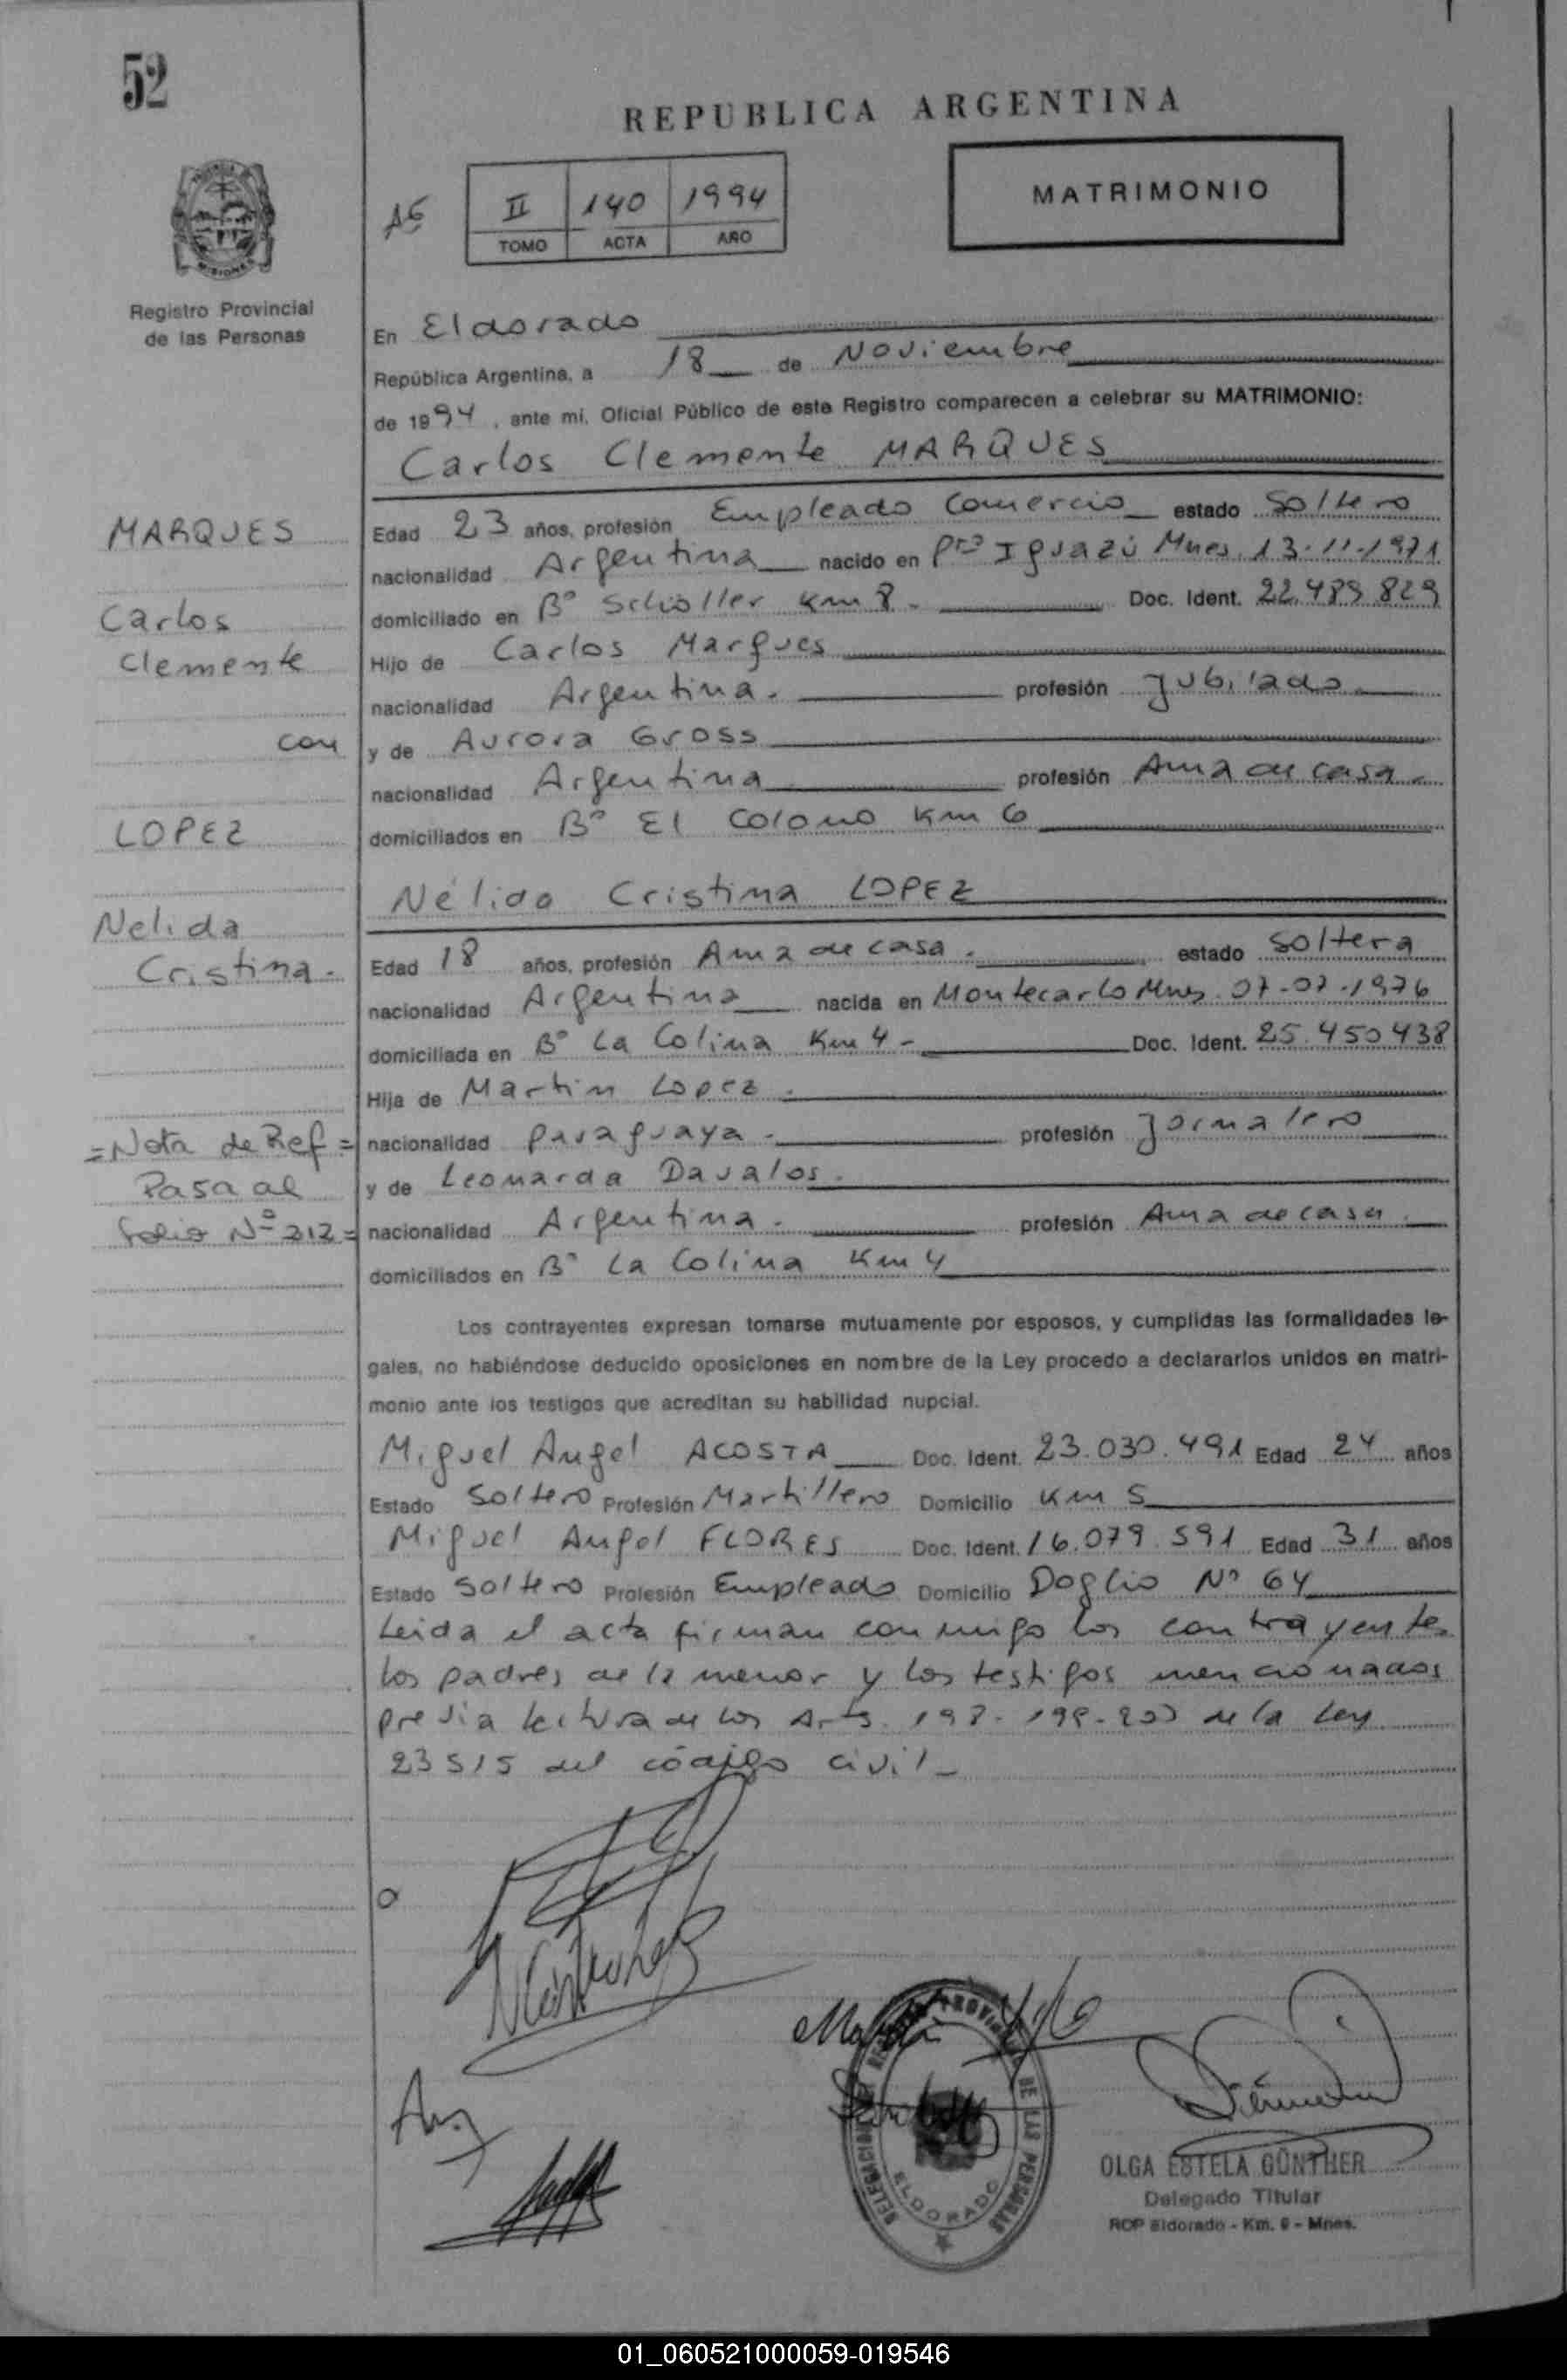 52
REPUBLICA ARGENTINA
II 140 1994
TOMO ACTA AÑO
MATRIMONIO
MISIONES
Registro Provincial
de las Personas
En Eldorado
República Argentina, a 18 de Noviembre
de 1994, ante mi, Oficial Público de este Registro comparecen a celebrar su MATRIMONIO:
Carlos Clemente MARQUES
MARQUES
Carlos
Clemente
con
LOPEZ
Nelida
Cristina.-
Edad 23 años, profesión Empleado Comercio estado Soltero
nacionalidad Argentina nacido en Pto Iguazú Mnes. 13-11-1971
domiciliado en Bº Schöller Km 8. Doc. Ident. 22.489.829
Hijo de Carlos Marques
nacionalidad Argentina. profesión Jubilado
y de Aurora Gross
nacionalidad Argentina profesión Ama de casa.
domiciliados en Bº El Colono Km 6
Nélida Cristina LOPEZ
Edad 18 años, profesión Ama de casa. estado Soltera
nacionalidad Argentina nacida en Montecarlo Mnes. 07-07-1976
domiciliada en Bº La Colina Km 4- Doc. Ident. 25.450.438
Hija de Martin Lopez.
nacionalidad paraguaya. profesión Jornalero
y de Leonarda Davalos.
nacionalidad Argentina. profesión Ama de casa.
domiciliados en Bº La Colina Km 4
=Nota de Ref=
Pasa al
folio Nº 212=
Los contrayentes expresan tomarse mutuamente por esposos, y cumplidas las formalidades le-
gales, no habiéndose deducido oposiciones en nombre de la Ley procedo a declararlos unidos en matri-
monio ante los testigos que acreditan su habilidad nupcial.
Miguel Angel ACOSTA Doc. Ident. 23.030.491 Edad 24 años
Estado Soltero Profesión Martillero Domicilio Km 5
Miguel Angel FLORES Doc. Ident. 16.079.591 Edad 31 años
Estado Soltero Profesión Empleado Domicilio Doglio Nº 64
Leida el acta firman conmigo los contrayentes
los padres de la menor y los testigos mencionados
previa lectura de los Arts. 198-199-200 de la Ley
23515 del código civil-
DE LAS PERSONAS
ELDORADO
OLGA ESTELA GÜNTHER
Delegado Titular
RCP Eldorado - Km. 9 - Mnes.
01_060521000059-019546